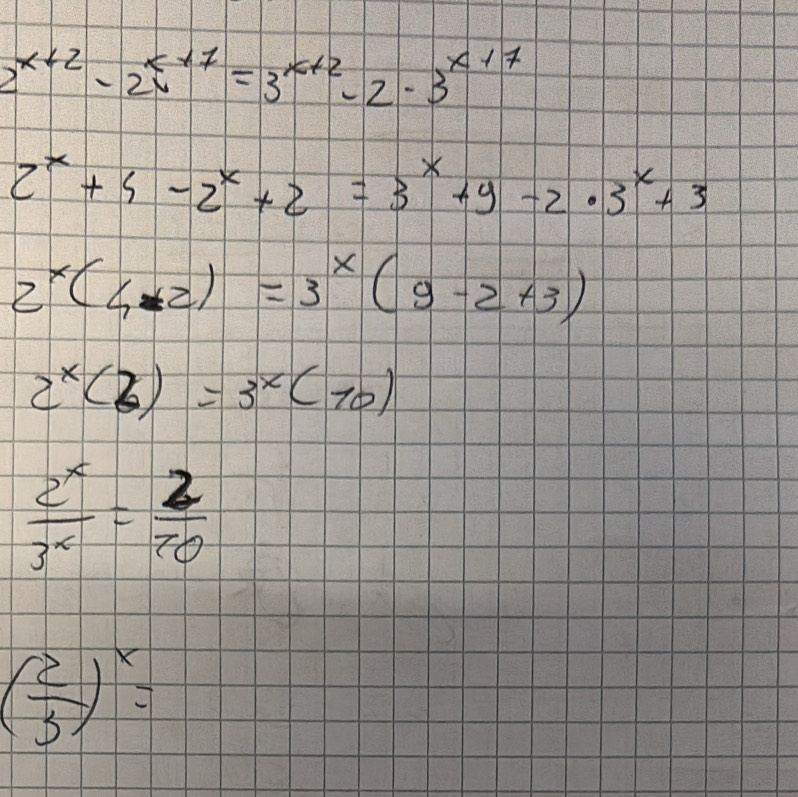 2^{x+2} - 2^{x+1} = 3^{x+2} - 2 · 3^{x+1}
2^x + 4 - 2^x + 2 = 3^x + 9 - 2 · 3^x + 3
2^x (4 - 2) = 3^x (9 - 2 + 3)
2^x (2) = 3^x (10)
\frac{2^x}{3^x} = \frac{2}{10}
(\frac{2}{3})^x =